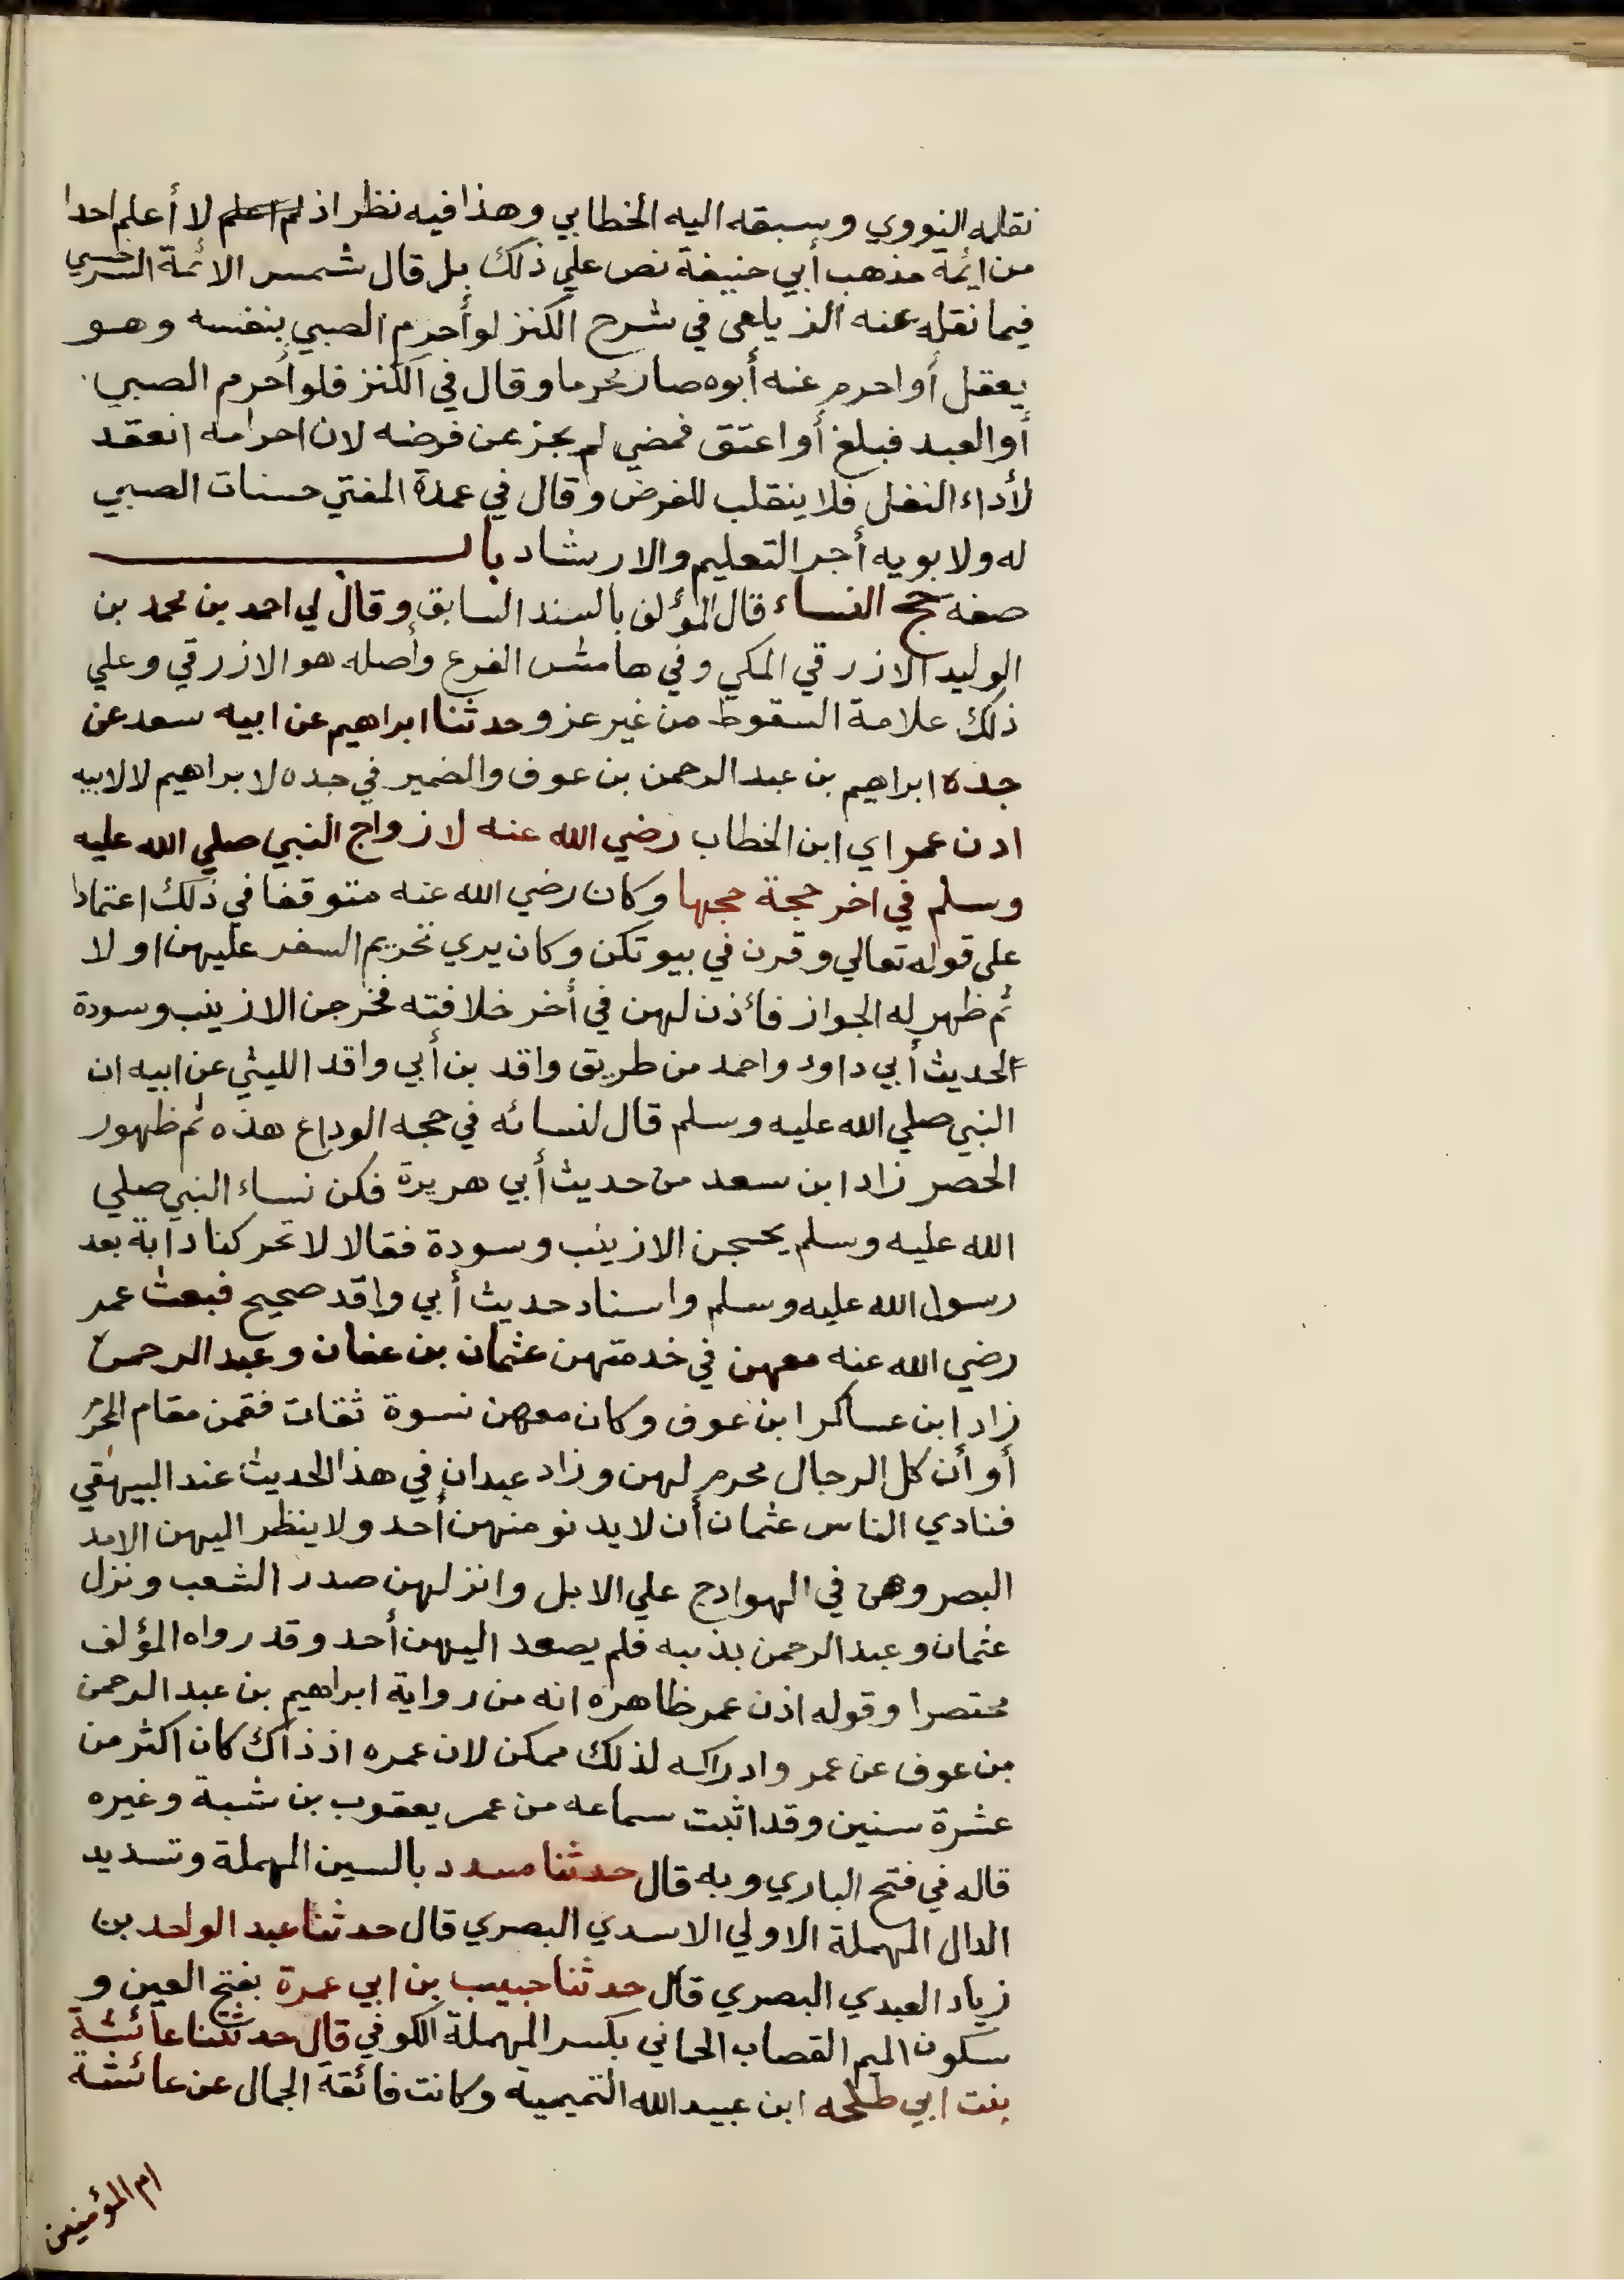 نقله النووي وسبقه اليه الخطابي وهذا فيه نظر اذ لم اعلم لا أعلم احدا
من ائمة مذهب أبي حنيفة نص علي ذلك بل قال شمس الائمة السرخسي
فيما نقله عنه الزيلعي في شرح الكنز لو أحرم الصبي بنفسه وهو
يعقل أو احرم عنه أبوه صار محرما وقال في الكنز فلو أحرم الصبي
أو العبد فبلغ أو اعتق فمضي لم يجز عن فرضه لان احرامه انعقد
لأداء النفل فلا ينقلب للفرض وقال في عمدة المفتي حسنات الصبي
له ولابويه أجر التعليم والارشاد باب
صفة حج النساء قال المؤلف بالسند السابق وقال لي احمد بن محمد بن
الوليد الازرقي المكي وفي هامش الفرع وأصله هو الازرقي وعلي
ذلك علامة السقوط من غير عزو حدثنا ابراهيم عن ابيه سعد عن
جده ابراهيم بن عبد الرحمن بن عوف والضمير في جده لابراهيم لا لابيه
اذن عمر اي ابن الخطاب رضي الله عنه لازواج النبي صلي الله عليه
وسلم في اخر حجة حجها وكان رضي الله عنه متوقفا في ذلك اعتمادا
علي قوله تعالي وقرن في بيوتكن وكان يري تحريم السفر عليهن اولا
ثم ظهر له الجواز فأذن لهن في أخر خلافته فخرجن الا زينب وسودة
لحديث أبي داود واحمد من طريق واقد بن أبي واقد الليثي عن ابيه ان
النبي صلي الله عليه وسلم قال لنسائه في حجه الوداع هذه ثم ظهور
الحصر زاد ابن سعد من حديث أبي هريرة فكن نساء النبي صلي
الله عليه وسلم يحججن الا زينب وسودة فقالا لا تحركنا دابة بعد
رسول الله عليه وسلم واسناد حديث أبي واقد صحيح فبعث عمر
رضي الله عنه معهن في خدمتهن عثمان بن عفان وعبد الرحمن
زاد ابن عساكر ابن عوف وكان معهن نسوة ثقات فقمن مقام المحرم
أو أن كل الرجال محرم لهن وزاد عبدان في هذا الحديث عند البيهقي
فنادي الناس عثمان أن لا يدنو منهن أحد ولا ينظر اليهن الا مد
البصر وهن في الهوادج علي الابل وانزلهن صدر الشعب ونزل
عثمان وعبد الرحمن بذنبه فلم يصعد اليهن أحد وقد رواه المؤلف
مختصرا وقوله اذن عمر ظاهره انه من رواية ابراهيم بن عبد الرحمن
بن عوف عن عمر وادراكه لذلك ممكن لان عمره اذ ذاك كان اكثر من
عشرة سنين وقد اثبت سماعه من عمر يعقوب بن شبة وغيره
قاله في فتح الباري وبه قال حدثنا مسدد بالسين المهملة وتسديد
الدال المهملة الاولي الاسدي البصري قال حدثنا عبد الواحد بن
زياد العبدي البصري قال حدثنا حبيب بن ابي عمرة بفتح العين و
سكون الميم القصاب الحماني بكسر المهملة الكوفي قال حدثتنا عائشة
بنت ابي طلحه ابن عبيد الله التميمية وكانت فائقة الجمال عن عائشة
ام المؤمنين